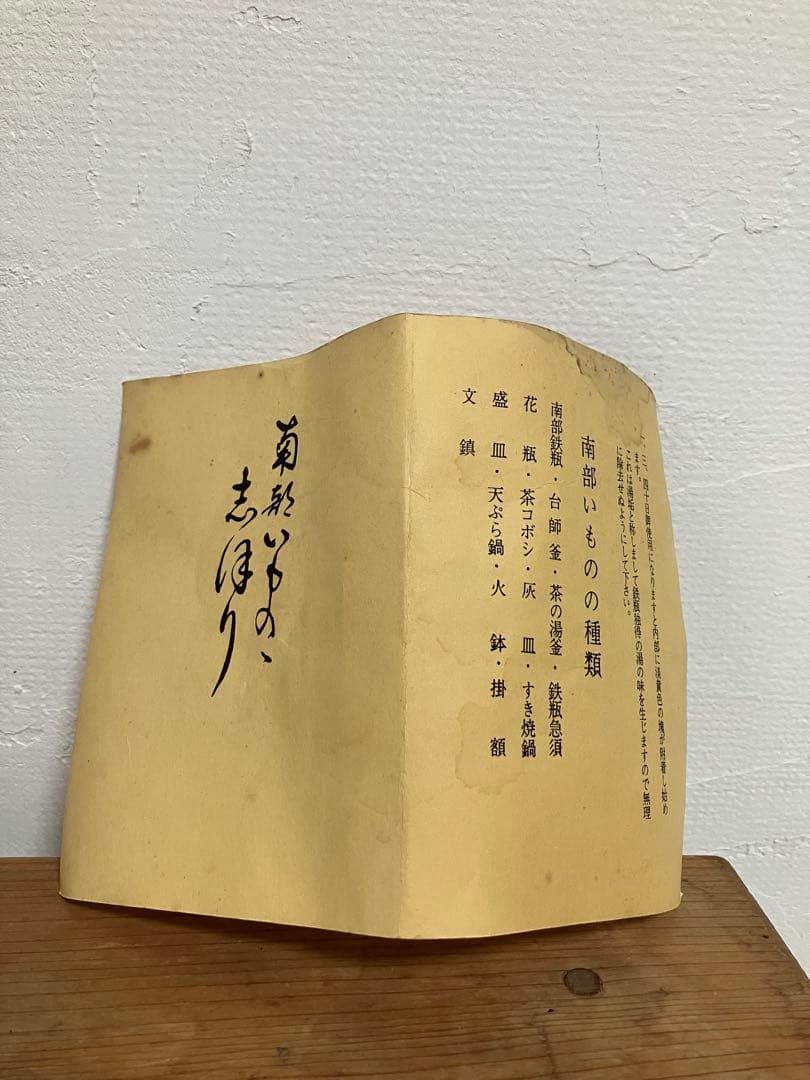 一、三、四十日御使用になりますと内部に淡黄色の塊が附着し始め
ます。
これは湯垢と称しまして鉄瓶独得の湯の味を生じますので無理
に除去せぬようにして下さい。
南部いものの種類
南部鉄瓶・台師釜・茶の湯釜・鉄瓶急須
花瓶・茶コボシ・灰皿・すき焼鍋
盛皿・天ぷら鍋・火鉢・掛額
文鎮
南部いもの、
志ほり